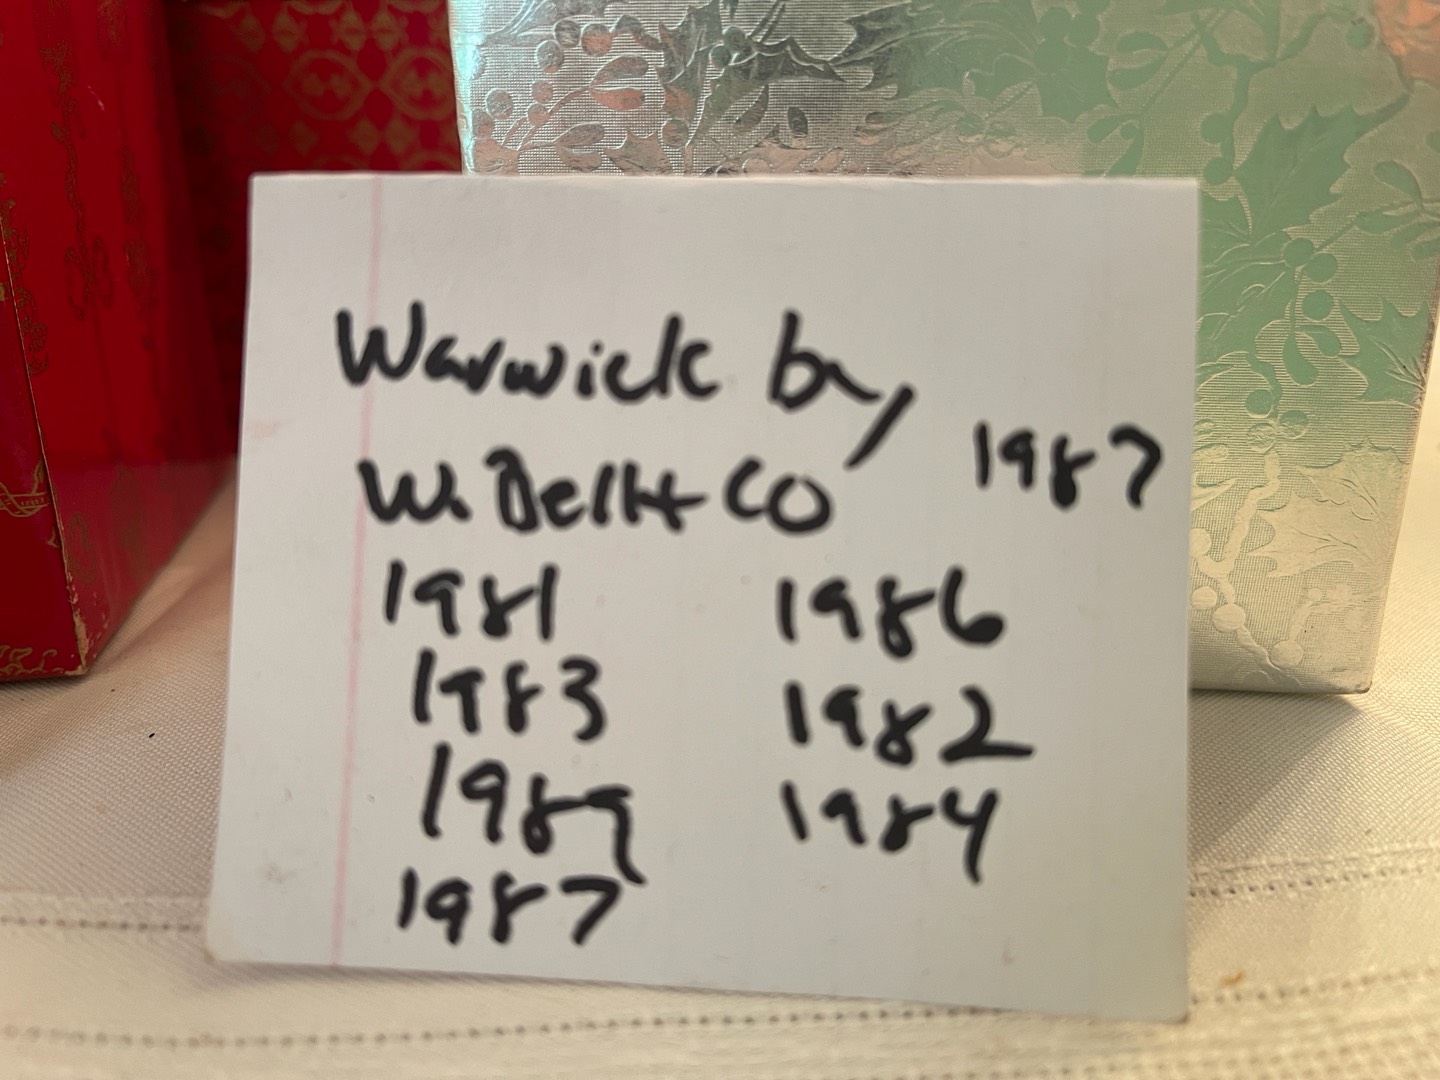 Warwick by
W. Bell + Co 1987
1981 1986
1983 1982
1989 1984
1987